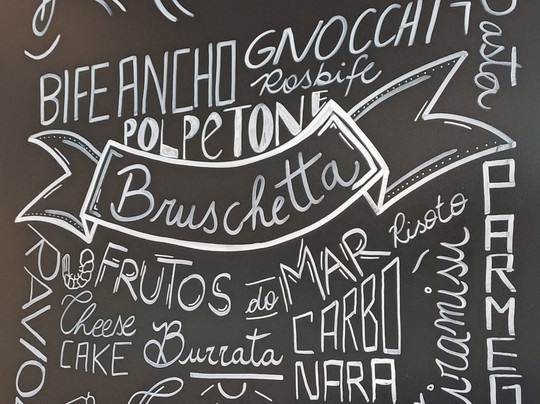 GNOCCHI
Pasta
BIFE ANCHO
Rosbife
POLPETONE
Bruschetta
Risoto
FRUTOS do MAR
Cheese
CAKE
Burrata
CARBO
NARA
RAVIO
Tiramisú
PARMEG